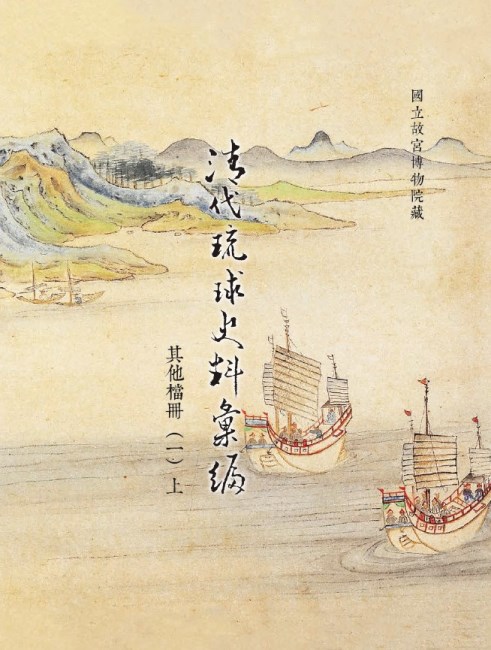 國立故宮博物院藏
清代琉球史料彙編
其他檔冊（一）上